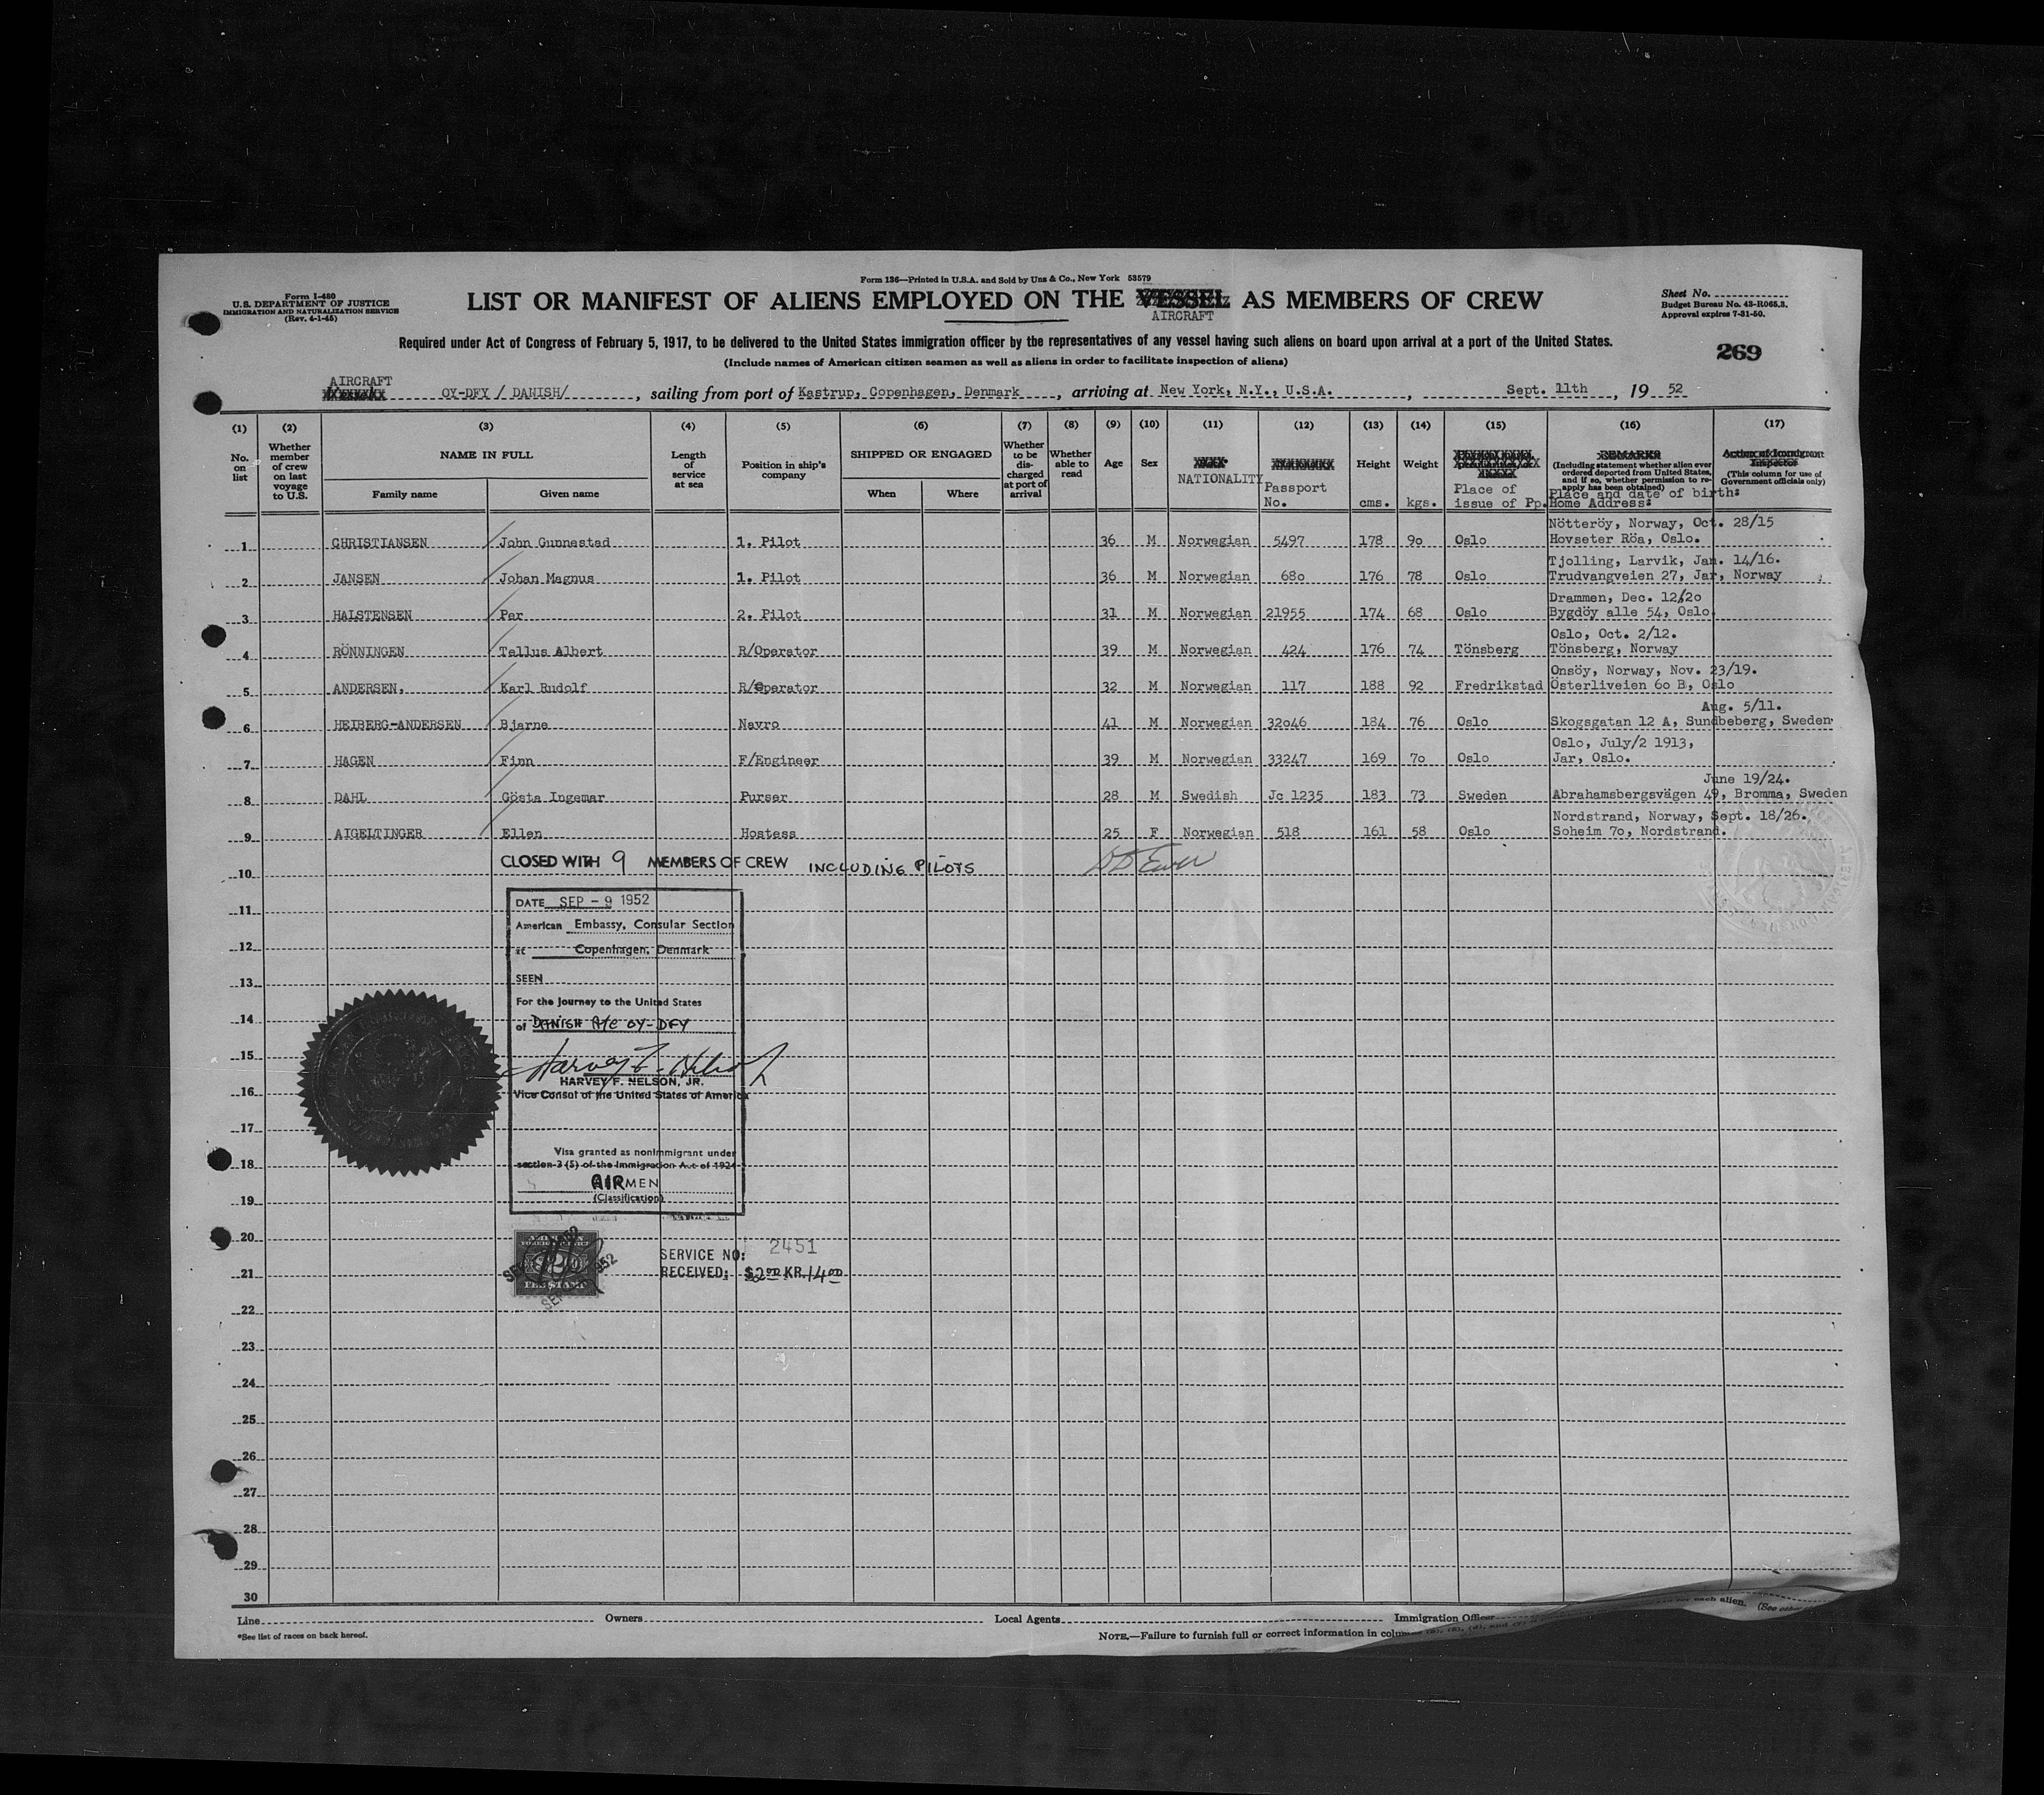 Form 136—Printed in U.S.A. and Sold by Unz & Co., New York 53579
Form I-480
U.S. DEPARTMENT OF JUSTICE
IMMIGRATION AND NATURALIZATION SERVICE
(Rev. 4-1-45)
LIST OR MANIFEST OF ALIENS EMPLOYED ON THE VESSEL AS MEMBERS OF CREW
AIRCRAFT
Sheet No.
Budget Bureau No. 43-R065.3.
Approval expires 7-31-50.
Required under Act of Congress of February 5, 1917, to be delivered to the United States immigration officer by the representatives of any vessel having such aliens on board upon arrival at a port of the United States.
(Include names of American citizen seamen as well as aliens in order to facilitate inspection of aliens)
269
AIRCRAFT
OY-DFY / DANISH/ , sailing from port of Kastrup, Copenhagen, Denmark , arriving at New York, N.Y., U.S.A. , Sept. 11th , 19 52
(1) (2) (3) (4) (5) (6) (7) (8) (9) (10) (11) (12) (13) (14) (15) (16) (17)
No. on list
Whether member of crew on last voyage to U.S.
NAME IN FULL
Family name Given name
Length of service at sea
Position in ship's company
SHIPPED OR ENGAGED
When Where
Whether to be discharged at port of arrival
Whether able to read
Age
Sex
NATIONALITY
Passport No.
Height cms.
Weight kgs.
Place of issue of Pp.
REMARKS
(Including statement whether alien ever ordered deported from United States, and if so, whether permission to reapply has been obtained)
Place and date of birth:
Home Address:
Action of Immigrant Inspector
(This column for use of Government officials only)
Nötteröy, Norway, Oct. 28/15
1 CHRISTIANSEN John Gunnestad 1. Pilot 36 M Norwegian 5497 178 9o Oslo Hovseter Röa, Oslo.
Tjolling, Larvik, Jan. 14/16.
2 JANSEN Johan Magnus 1. Pilot 36 M Norwegian 68o 176 78 Oslo Trudvangveien 27, Jar, Norway
Drammen, Dec. 12/2o
3 HALSTENSEN Per 2. Pilot 31 M Norwegian 21955 174 68 Oslo Bygdöy alle 54, Oslo.
Oslo, Oct. 2/12.
4 RÖNNINGEN Tellus Albert R/Operator 39 M Norwegian 424 176 74 Tönsberg Tönsberg, Norway
Onsöy, Norway, Nov. 23/19.
5 ANDERSEN, Karl Rudolf R/Operator 32 M Norwegian 117 188 92 Fredrikstad Österliveien 6o B, Oslo
Aug. 5/11.
6 HEIBERG-ANDERSEN Bjarne Navro 41 M Norwegian 32o46 184 76 Oslo Skogsgatan 12 A, Sundbeberg, Sweden
Oslo, July/2 1913,
7 HAGEN Finn F/Engineer 39 M Norwegian 33247 169 7o Oslo Jar, Oslo.
June 19/24.
8 DAHL Gösta Ingemar Purser 28 M Swedish Jc 1235 183 73 Sweden Abrahamsbergsvägen 49, Bromma, Sweden
Nordstrand, Norway, Sept. 18/26.
9 AIGELTINGER Ellen Hostess 25 F Norwegian 518 161 58 Oslo Soheim 7o, Nordstrand.
CLOSED WITH 9 MEMBERS OF CREW INCLUDING PILOTS
10
11
12
13
14
15
16
17
18
19
20
21
22
23
24
25
26
27
28
29
30
DATE SEP - 9 1952
American Embassy, Consular Section
at Copenhagen, Denmark
SEEN
For the Journey to the United States
of DANISH A/C OY-DFY
Harvey F. Nelson Jr
HARVEY F. NELSON, JR.
Vice Consul of the United States of America
Visa granted as nonimmigrant under
section 3 (5) of the Immigration Act of 1924
AIRMEN
(Classification)
SERVICE NO: 2451
RECEIVED: $2.00 KR. 14.00
FEE STAMP
Line Owners Local Agents Immigration Officer
*See list of races on back hereof.
NOTE.—Failure to furnish full or correct information in
each alien. (See other